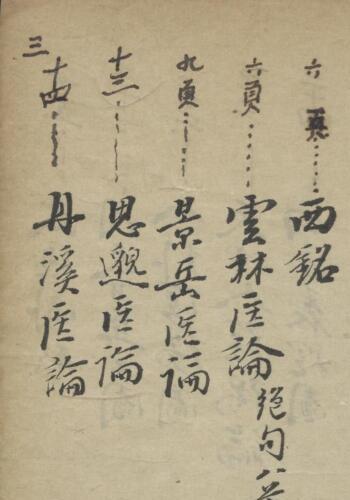 六頁……西銘
六頁……雲林医論絕句八
九頁……景岳医論
十三……思邈医論
十四……丹溪医論
三